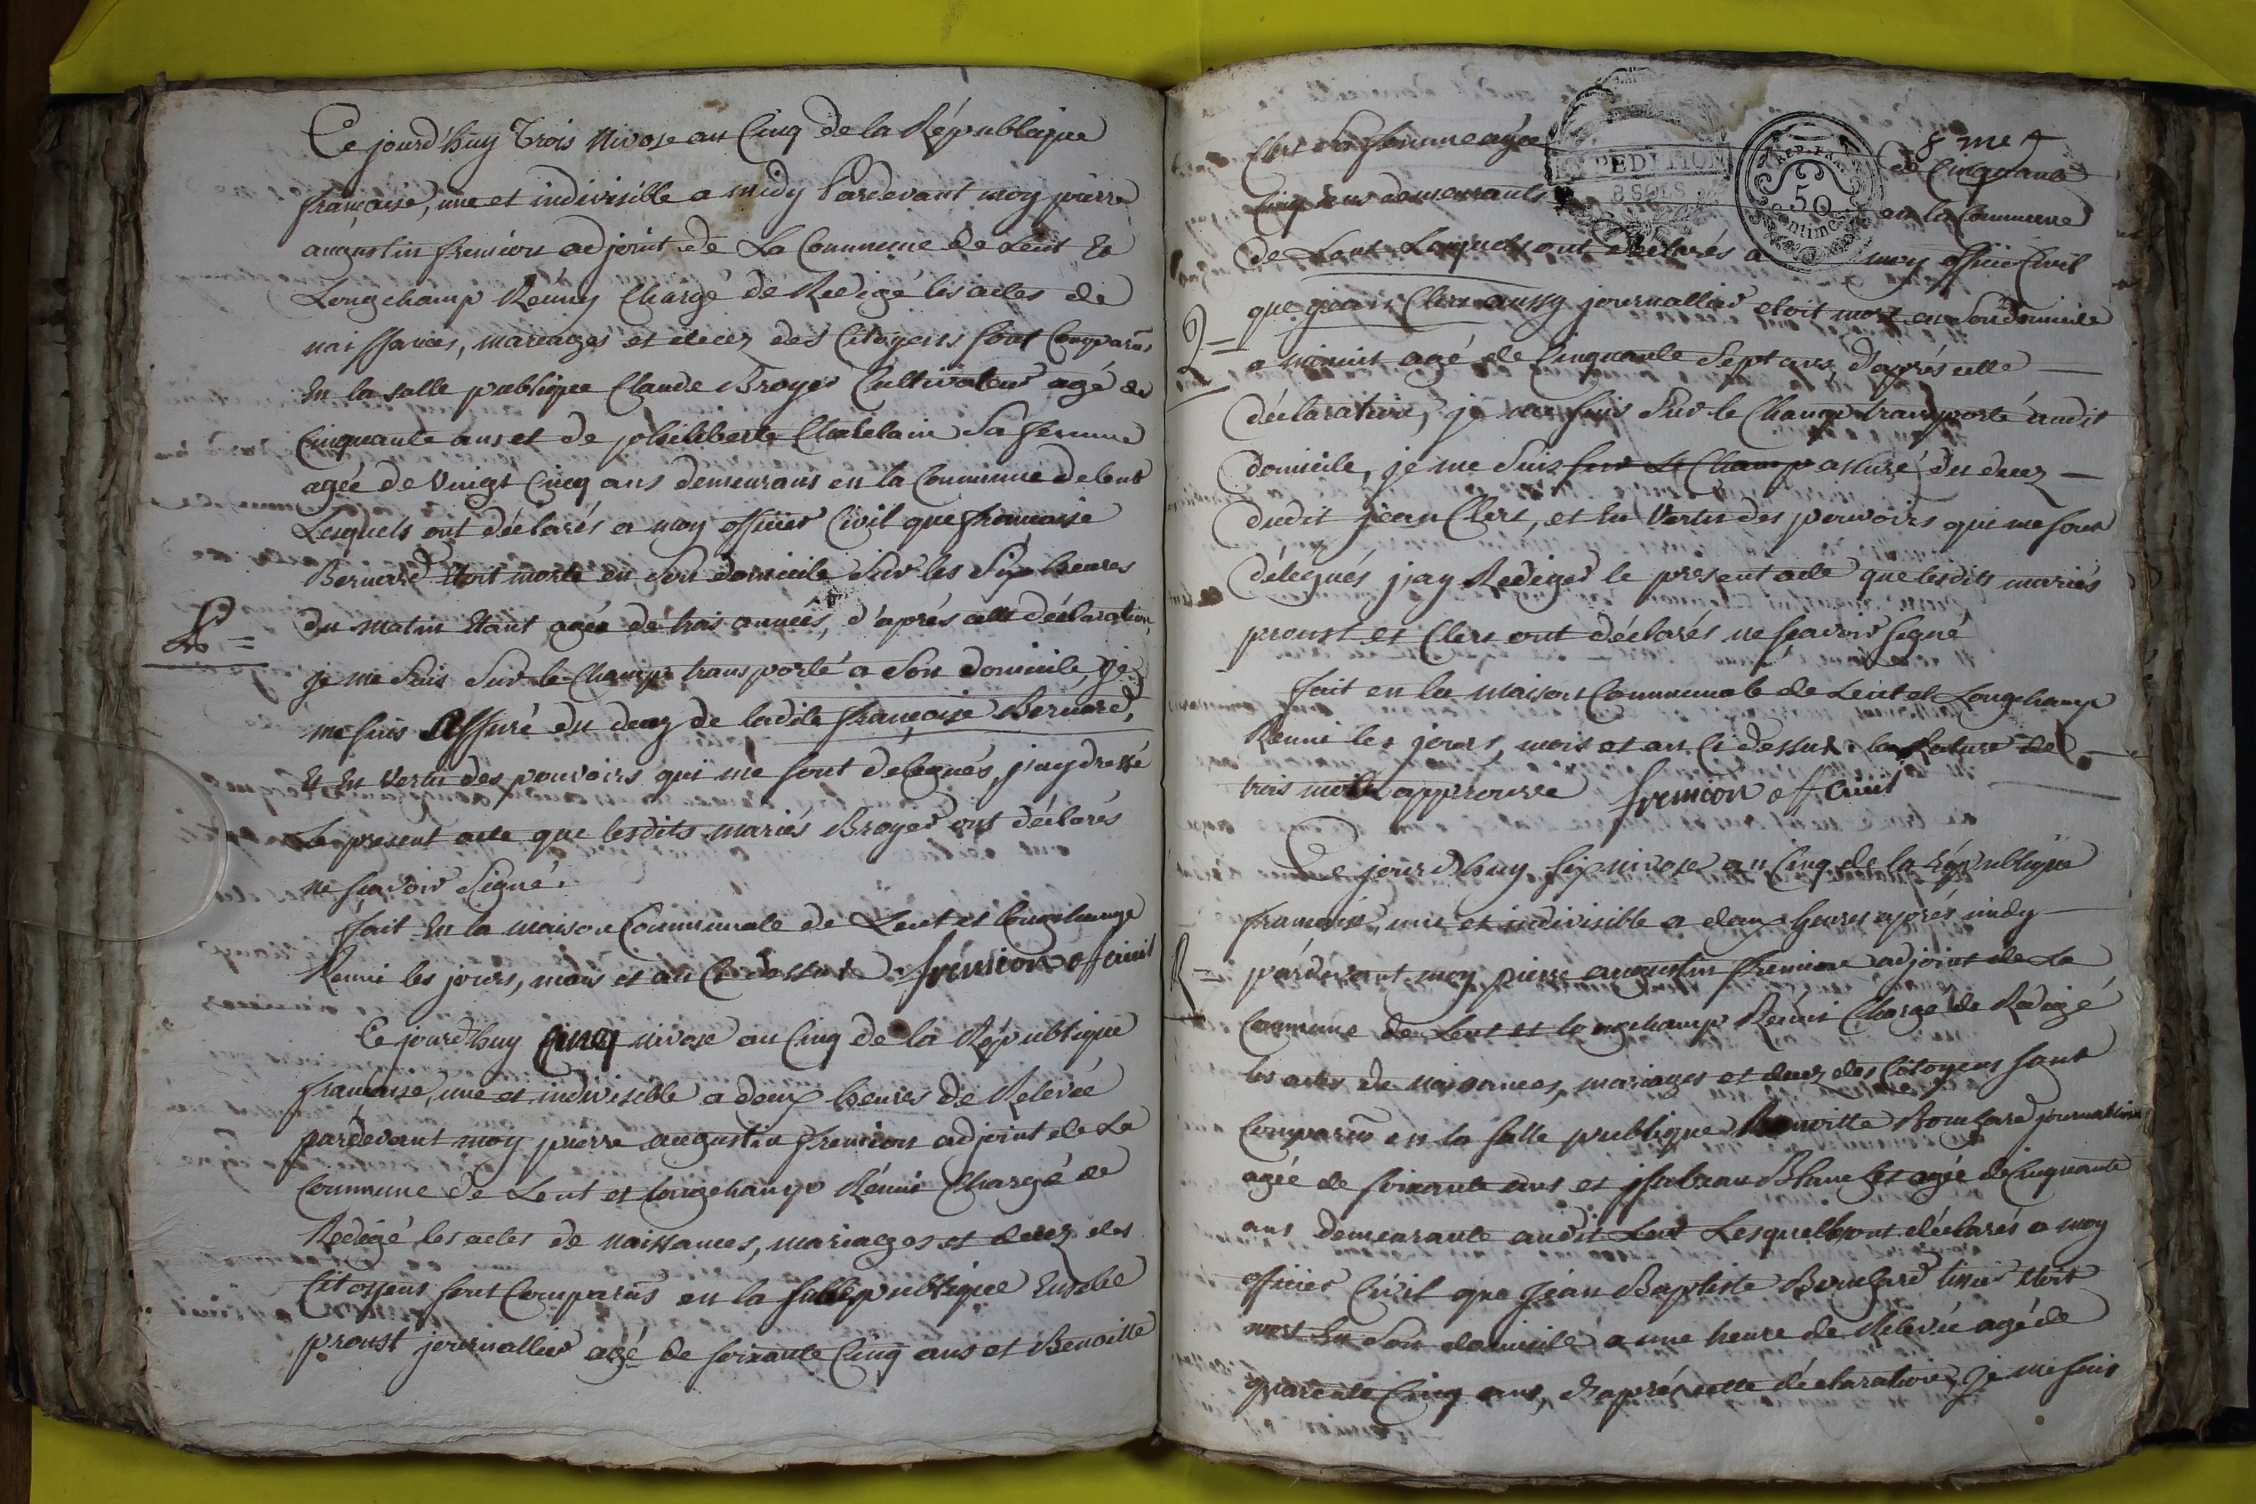 Ce jourd'huy Trois Nivose an Cinq de la République
française, une et indivisible a midy Pardevant moy pierre
augustin fremion adjoint de La Commune de Lent Et
Longchamp Réuny Chargé de Redigé les actes de
naissances, mariages et decez des Citoyens sont Comparûs
En la salle publique Claude Broyer Cultivateur agé de
Cinquante ans et de philiberte Chatelain Sa femme
agée de Vingt Cinq ans demeurans en la Commune de lent
Lesquels ont déclarés a moy officier Civil que francoise
Bernard Etoit morte en son domicile Sur les Six heures
du matin Etant agée de trois années, d'aprés cette déclaration,
je me suis Sur le Champ transporté a Son domicile, je
me suis assuré du decez de ladite françoise Bernard,
Et En Vertu des pouvoirs qui me sont delegués, j'ay dressé
Le present acte que lesdits mariés Broyer ont déclarés
ne sçavoir Signé.
fait En la maison Communale de Lent et Longchamp
Reuni les jours, mois et an Ci dessus fremion off civil
Ce jourd'huy Cinq nivose an Cinq de la République
francaise, une et indivisible a deux heures de Relevée
pardevant moy pierre augustin fremion adjoint de La
Commune de Lent et longchamp Réuni Chargé de
Redigé les actes de naissances, mariages et decez des
Citoyens sont Comparûs en la salle publique
proust journallier agé de soixante Cinq ans et Benoitte
Clerc Sa femme agée de Cinquante
Cinq ans demeurants en la Commune
de Lent Lesquels ont déclarés a moy officier Civil
que jean Clerc aussy journallier etoit mort en Son domicile
a minuit agé de Cinquante Sept ans, d'aprés cette
déclaration, je me suis Sur le Champ transporté audit
domicile, je me Suis sur Le Champ assuré du decez
dudit jean Clerc, et En Vertu des pouvoirs qui me sont
délegués j'ay Rediger le present acte que lesdits mariés
proust et Clerc ont déclarés ne sçavoir signé
fait en la maison Communale de Lent et Longchamp
Reuni les jours, mois et an Ci dessus la Rature de
trois mots approuvée fremion off Civil
Ce jourd'huy six nivose an Cinq de la République
francaise, une et indivisible a deux heures aprés midy
pardevant moy pierre augustin fremion adjoint de La
Commune de Lent et longchamp Réuni Chargé de Redigé
les actes de naissances, mariages et decez des Citoyens sont
Comparûs en la salle publique Benoitte journalliere
agée de soixante ans et jsabeau Blanc agée de Cinquante
ans demeurante audit Lent Lesquelles ont déclarés a moy
officier Civil que Jean Baptiste etoit
mort En Son domicile a une heure de Relevée agé de
quarente Cinq ans, d'aprés cette déclaration, je me suis
EXPEDITION
8 SOLS
REP. FRA.
50
Centimes